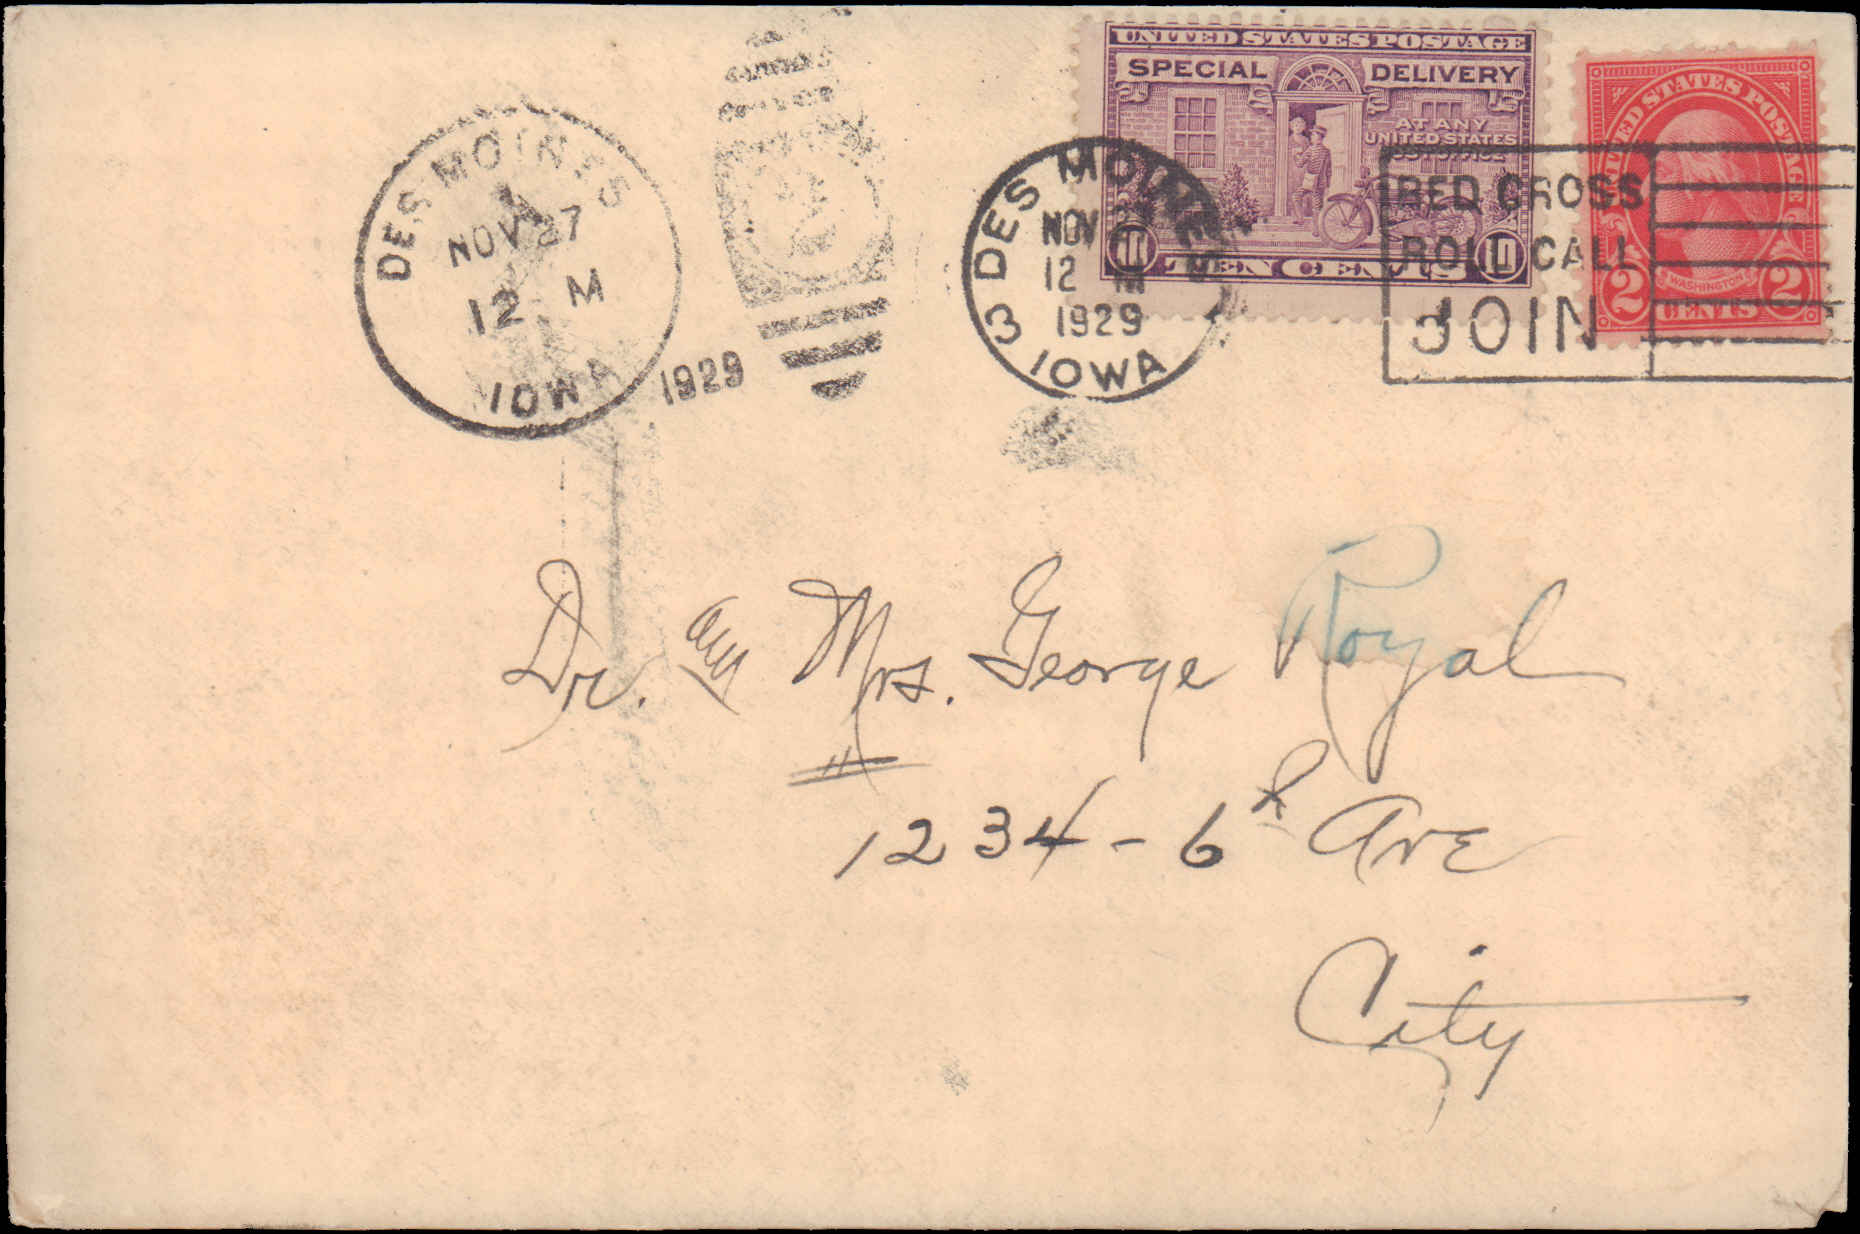 DES MOINES
NOV 27
12 M
IOWA
1929
DES MOINES
NOV
12 M
1929
IOWA
3
UNITED STATES POSTAGE
SPECIAL DELIVERY
AT ANY
UNITED STATES
POST OFFICE
10 TEN CENTS 10
RED CROSS
ROLL CALL
JOIN
UNITED STATES POSTAGE
WASHINGTON
2 CENTS 2
Dr. and Mrs. George Royal
1234 - 6th Ave
City